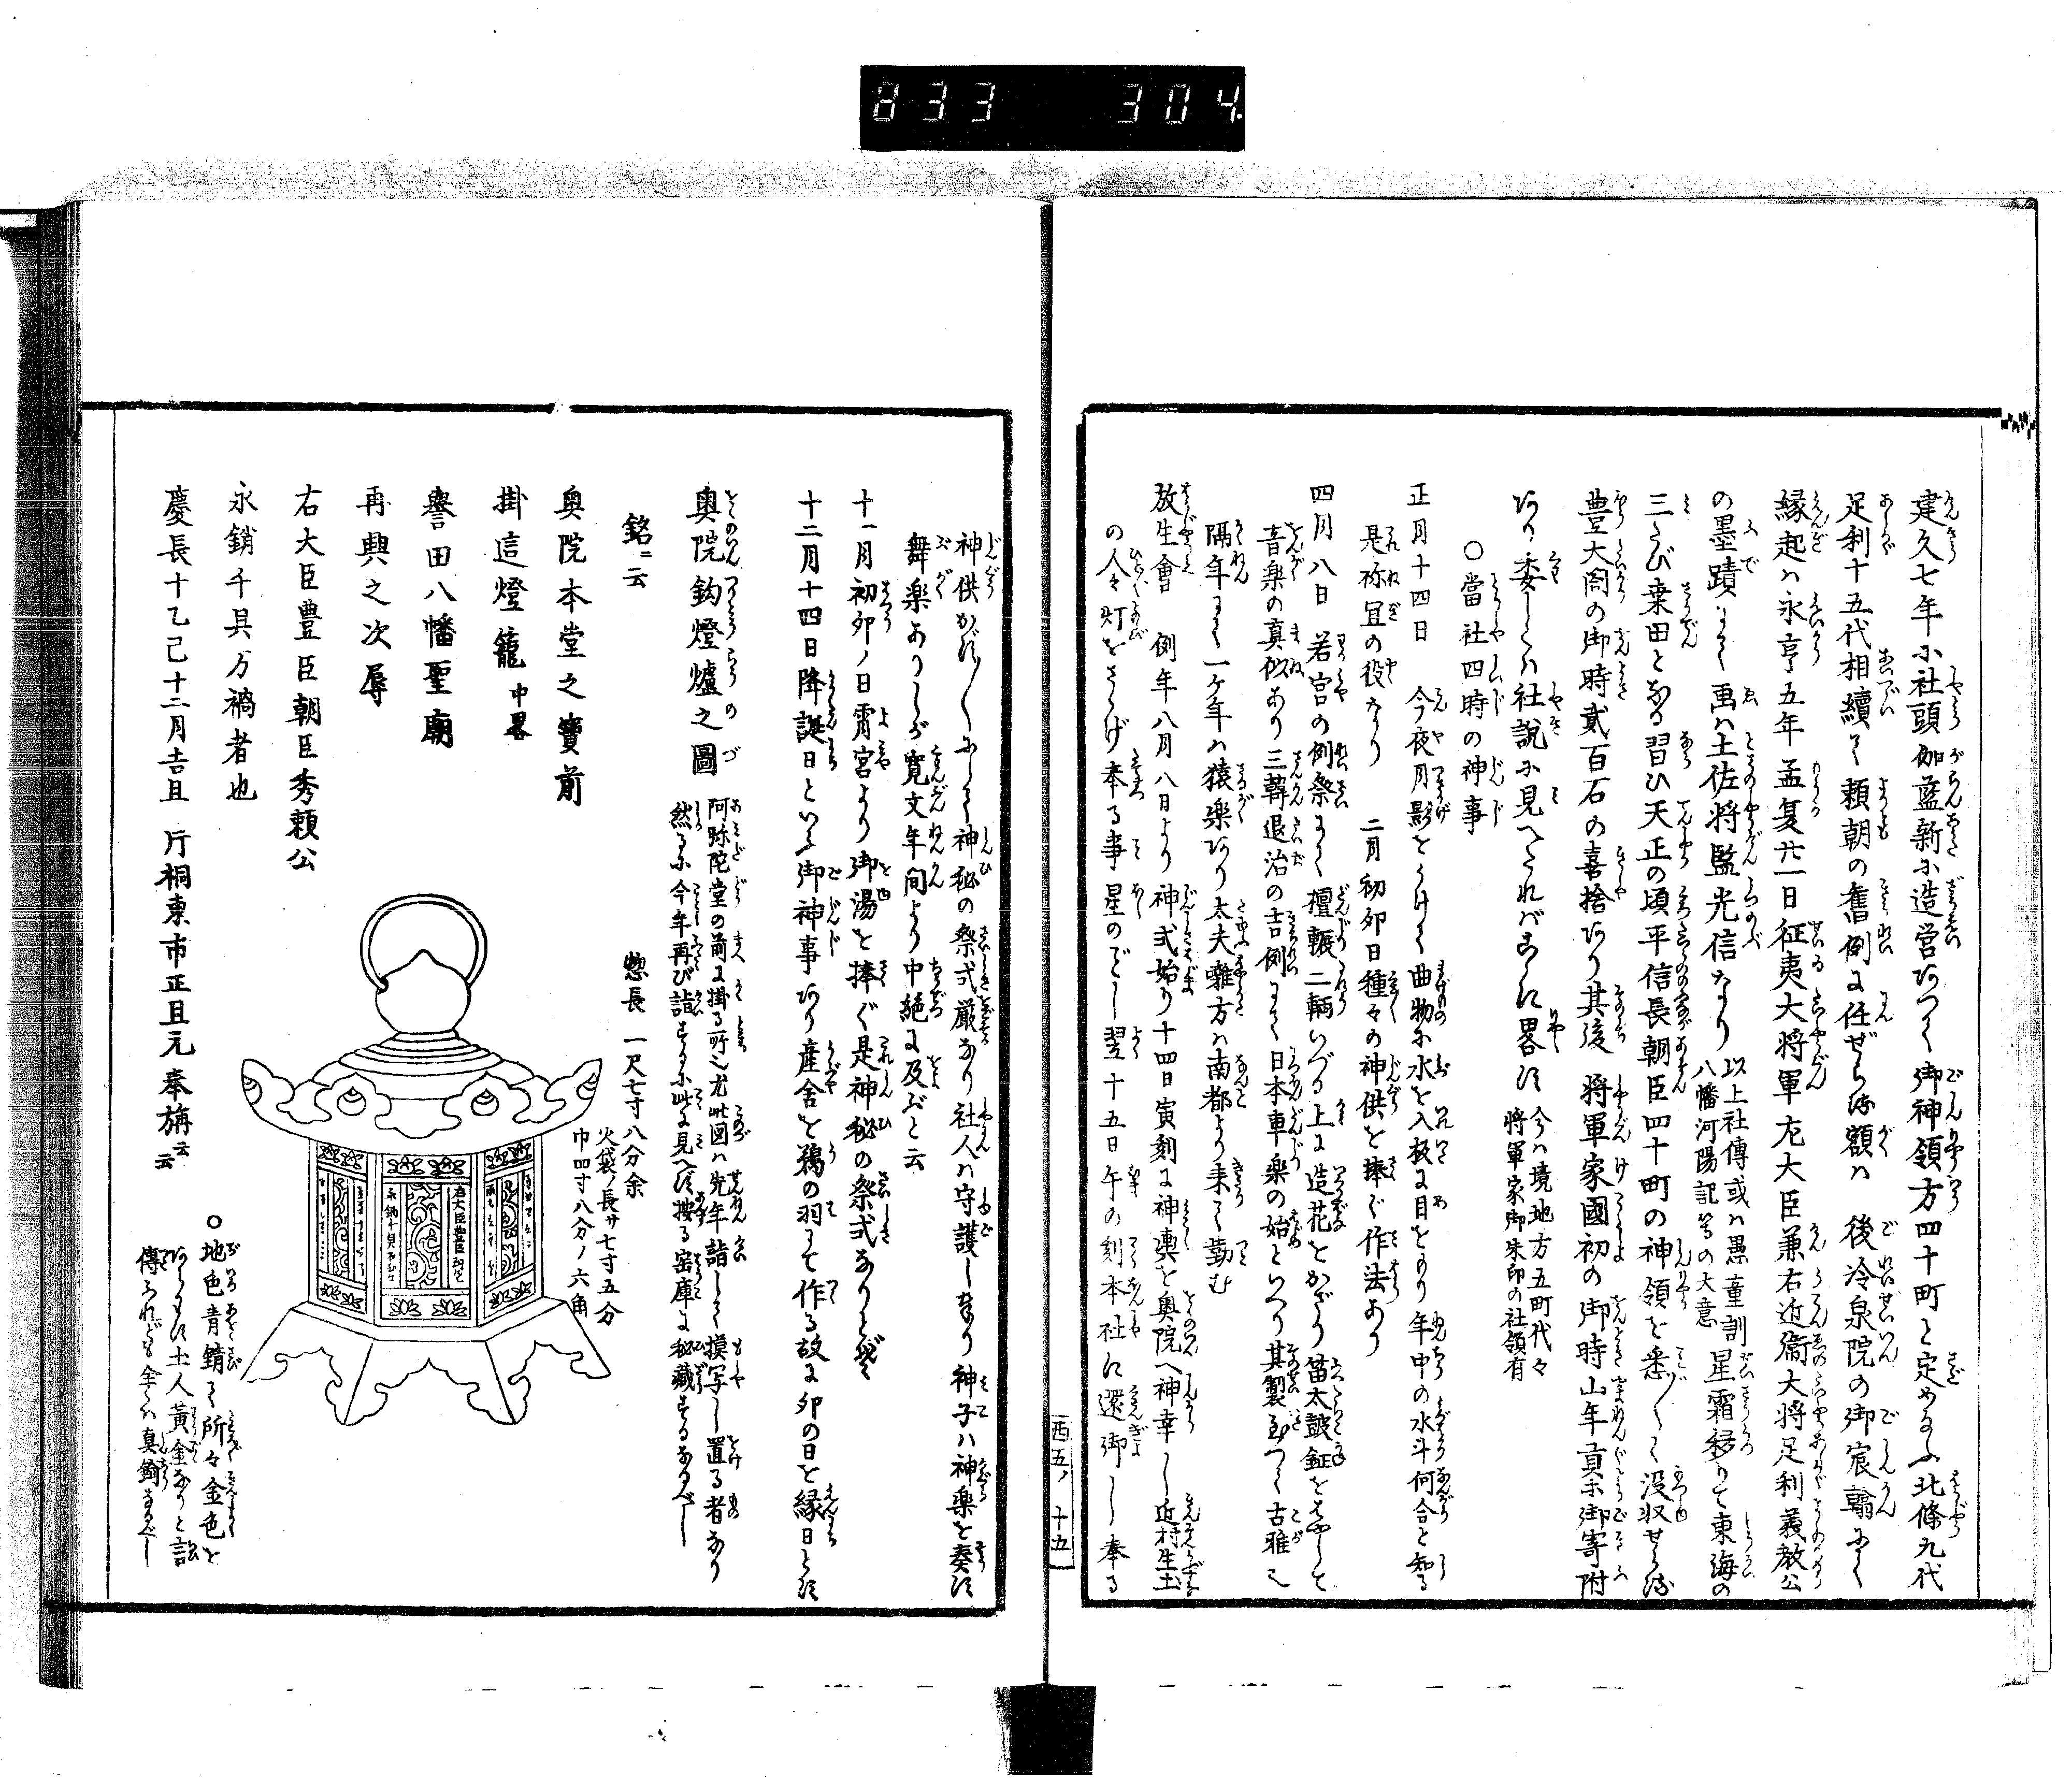 833 304
建久七年に社頭伽藍新に造営ありて御神領方四十町と定め給ふ北條九代
足利十五代相續して頼朝の舊例に任ぜらる額は後冷泉院の御宸翰にて
縁起は永亨五年孟夏廿一日征夷大将軍左大臣兼右近衛大将足利義教公
の墨蹟にて画は土佐将監光信なり
以上社傳或は愚童訓
八幡河陽記等の大意
星霜移りて東海の
三たび桑田となる習ひ天正の頃平信長朝臣四十町の神領を悉く没収せらる
豊太閤の御時貳百石の喜捨あり其後将軍家國初の御時山年貢米御寄附
あり委しくは社説に見へたればこゝに畧す
今は境地方五町代々
将軍家御朱印の社領有
○當社四時の神事
正月十四日 今夜月影をうけて曲物に水を入板に目をもり年中の水斗何合と知る
是祢冝の役なり 二月初卯日種々の神供を捧ぐ作法あり
四月八日 若宮の例祭にて檀輾二輌いづる上に造花をかざり笛太皷鉦をはやして
音楽の真似あり三韓退治の吉例にて日本車楽の始といへり其製至つて古雅也
隔年にて一ケ年は猿楽あり太夫囃方は南都より来て勤む
放生會 例年八月八日より神式始り十四日寅刻に神輿を奥院へ神幸し近村生土
の人々灯をさゝげ奉る事星のごとし翌十五日午の刻本社に還御し奉る
西五ノ十五
神供かず〳〵にして神秘の祭式厳なり社人は守護し奉り神子は神楽を奏す
舞楽ありしが寛文年間より中絶に及ぶと云
十一月初卯ノ日霄宮より御湯を捧ぐ是神秘の祭式なりとぞ
十二月十四日降誕日といふ御神事あり産舎を鵜の羽にて作る故に卯の日を縁日とす
奥院鈎燈爐之圖
阿弥陀堂の前に掛る所也尤此図は先年詣して摸写し置る者なり
然るに今年再び詣するに此に見へず按る宻庫に秘藏するなるべし
銘ニ云
惣長 一尺七寸八分余
火袋ノ長サ七寸五分
巾四寸八分ノ六角
奥院本堂之寳前
掛這燈籠 中畧
譽田八幡聖廟
再興之次辱
右大臣豊臣朝臣秀頼公
永銷千具万禍者也
慶長十乙己十二月吉且 斤桐東市正且元奉旃云云
○地色青錆て所々金色を
あらはす土人黄金なりと訟
傳ふれども全くは真鍮なるべし